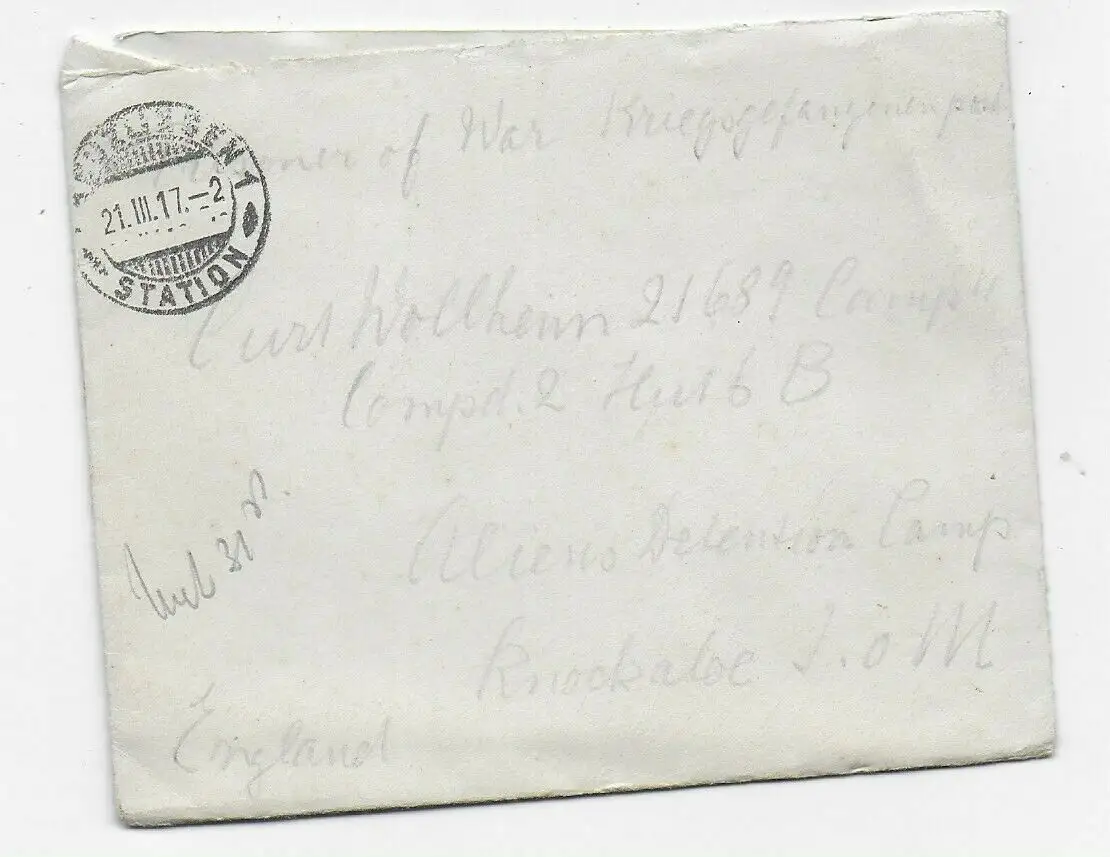 Prisoner of War Kriegsgefangenenpost
21.III.17.–2
STATION
Curt Wollheim 21689 Camp 4
Compd. 2 Hut 6 B
Aliens Detention Camp
Knockaloe I.o M
England